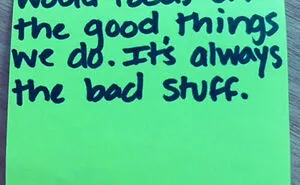 the good things
we do. It's always
the bad stuff.